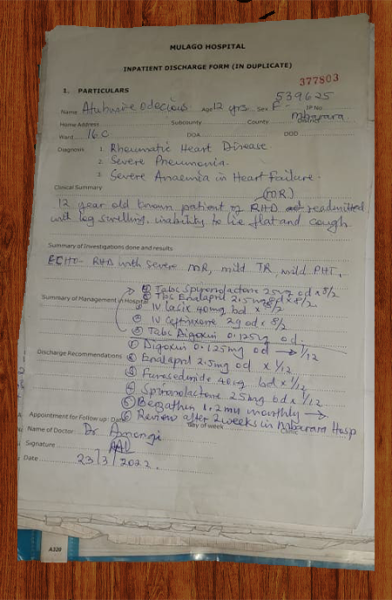 MULAGO HOSPITAL
INPATIENT DISCHARGE FORM (IN DUPLICATE)
377803
1. PARTICULARS
539625
Name Atuhwire Odocious Age 12 yrs Sex F IP No
Home Address Subcounty County District Mbarara
Ward 16C DOA DOD
Diagnosis 1. Rheumatic Heart Disease
2. Severe Pneumonia.
3. Severe Anaemia in Heart Failure.
Clinical Summary (MR)
12 year old known patient of RHD readmitted
with leg swelling, inability to lie flat and cough
Summary of Investigations done and results
ECHO- RHD with severe MR, mild TR, mild PHT.
① Tabs Spironolactone 25mg od x 8/7
Summary of Management in Hospital ② Tbs Enalapril 2.5mg od x 8/7
③ IV Lasix 40mg bd x 8/7
④ IV Ceftriaxone 2g od x 8/7
⑤ Tabs Digoxin 0.125mg od
① Digoxin 0.125mg od → 1/12
Discharge Recommendations ② Enalapril 2.5mg od x 1/12
③ Furosemide 40mg bd x 1/12
④ Spironolactone 25mg od x 1/12
⑤ Benzathin 1.2mu monthly →
Appointment for Follow up: Day of week ⑥ Review after 2 weeks in Mbarara Hosp
Name of Doctor Dr Amongi
Signature
Date 23/3/2022.
A328